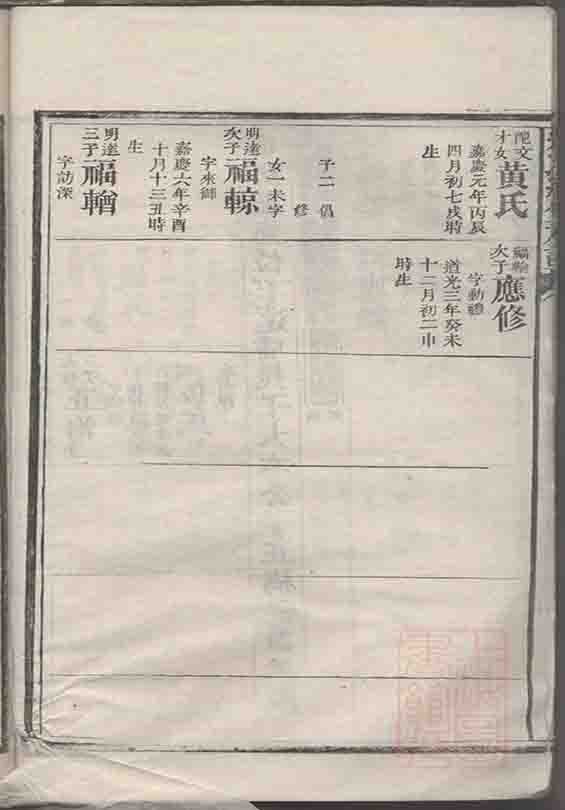 配文才女黃氏
嘉慶元年丙辰
四月初七戌時
生
子二 倡
修
女一未字
明達次子福輬
字來御
嘉慶六年辛酉
十月十三丑時
生
明達三子福輶
字訪深
次子應修
字勤禮
道光三年癸未
十二月初二申
時生